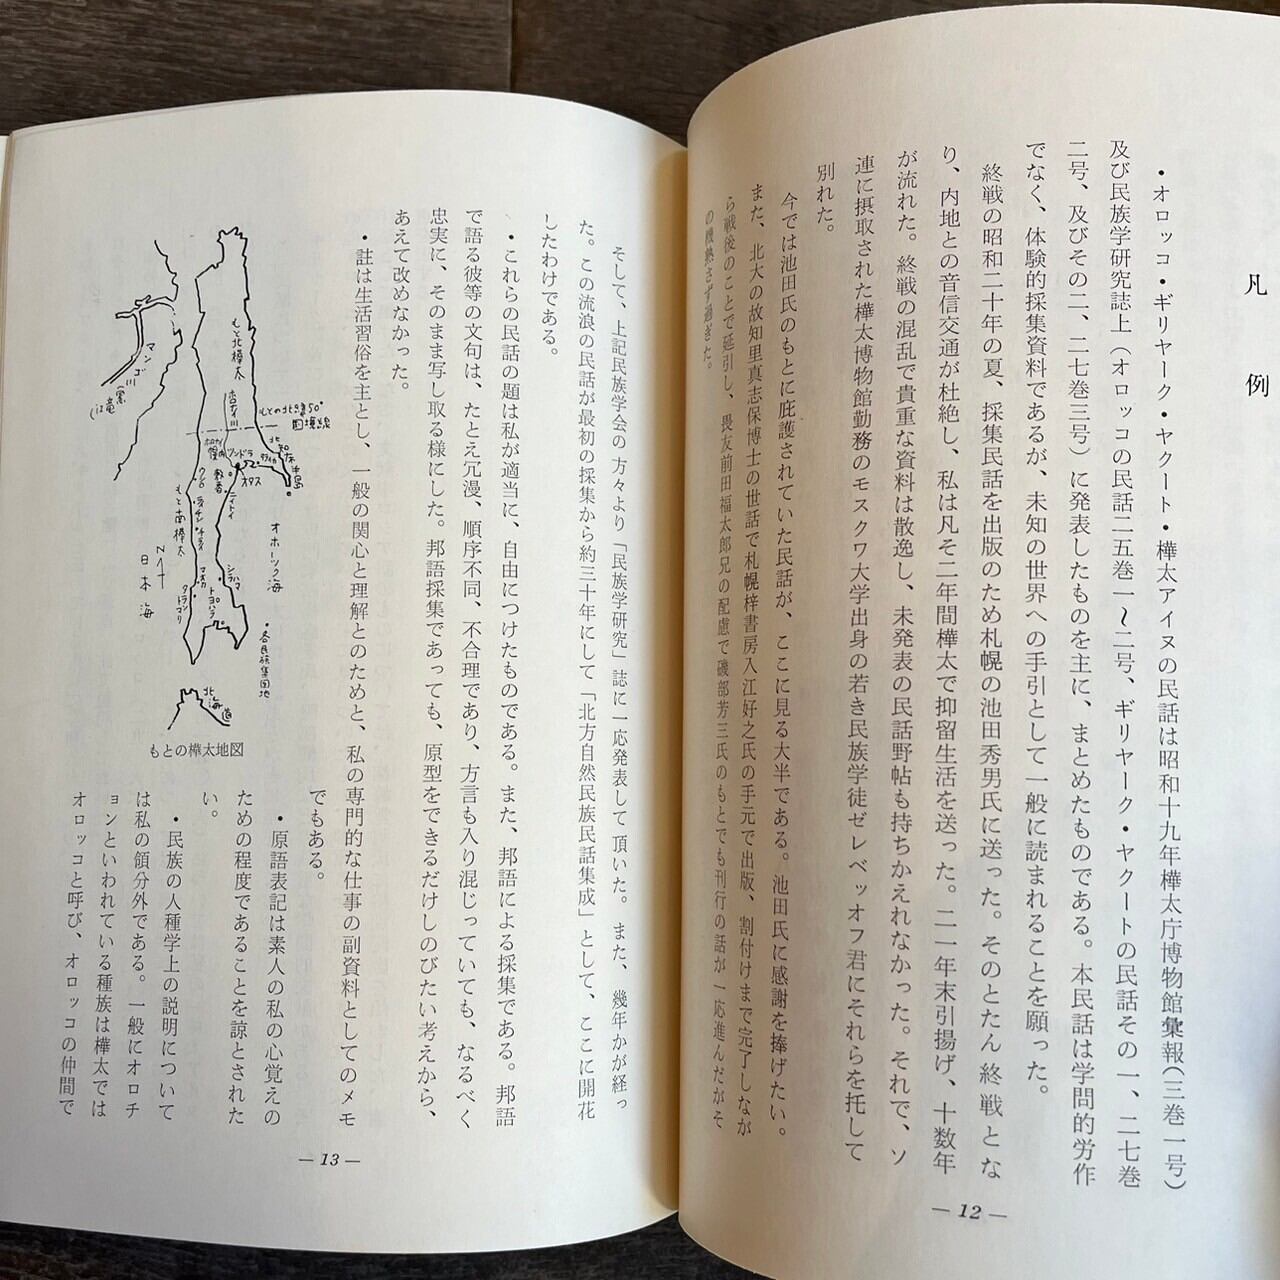 凡例
・オロッコ・ギリヤーク・ヤクート・樺太アイヌの民話は昭和十九年樺太庁博物館彙報（三巻一号）
及び民族学研究誌上（オロッコの民話二五巻一～二号、ギリヤーク・ヤクートの民話その一、二七巻
二号、及びその二、二七巻三号）に発表したものを主に、まとめたものである。本民話は学問的労作
でなく、体験的採集資料であるが、未知の世界への手引として一般に読まれることを願った。
終戦の昭和二十年の夏、採集民話を出版のため札幌の池田秀男氏に送った。そのとたん終戦とな
り、内地との音信交通が杜絶し、私は凡そ二年間樺太で抑留生活を送った。二一年末引揚げ、十数年
が流れた。終戦の混乱で貴重な資料は散逸し、未発表の民話野帖も持ちかえれなかった。それで、ソ
連に摂取された樺太博物館勤務のモスクワ大学出身の若き民族学徒ゼレベッオフ君にそれらを托して
別れた。
今では池田氏のもとに庇護されていた民話が、ここに見る大半である。池田氏に感謝を捧げたい。
また、北大の故知里真志保博士の世話で札幌梓書房入江好之氏の手元で出版、割付けまで完了しなが
ら戦後のことで延引し、畏友前田福太郎兄の配慮で磯部芳三氏のもとでも刊行の話が一応進んだがそ
の機熟さず過ぎた。
— 12 —
そして、上記民族学会の方々より「民族学研究」誌に一応発表して頂いた。また、幾年かが経っ
た。この流浪の民話が最初の採集から約三十年にして「北方自然民族民話集成」として、ここに開花
したわけである。
・これらの民話の題は私が適当に、自由につけたものである。また、邦語による採集である。邦語
で語る彼等の文句は、たとえ冗漫、順序不同、不合理であり、方言も入り混じっていても、なるべく
忠実に、そのまま写し取る様にした。邦語採集であっても、原型をできるだけしのびたい考えから、
あえて改めなかった。
・註は生活習俗を主とし、一般の関心と理解とのためと、私の専門的な仕事の副資料としてのメモ
でもある。
・原語表記は素人の私の心覚えの
ための程度であることを諒とされた
い。
・民族の人種学上の説明について
は私の領分外である。一般にオロチ
ョンといわれている種族は樺太では
オロッコと呼び、オロッコの仲間で
もと北樺太
マンゴ川
（黒竜江）
ホロナイ川
もとの北緯50°
国境線
北知床半島
ツンドラ
タライカ
敷香
オタス
ニイトイ
もと南樺太
オホーツク海
日本海
N
シラハマ
トヨハラ
マオカ
・各民族集団地
北海道
もとの樺太地図
— 13 —